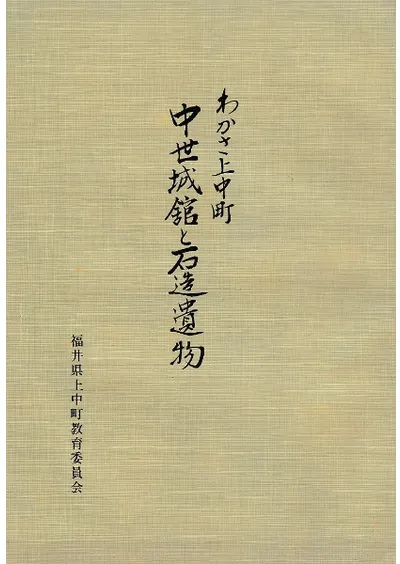 わかさ上中町
中世城館と石造遺物
福井県上中町教育委員会